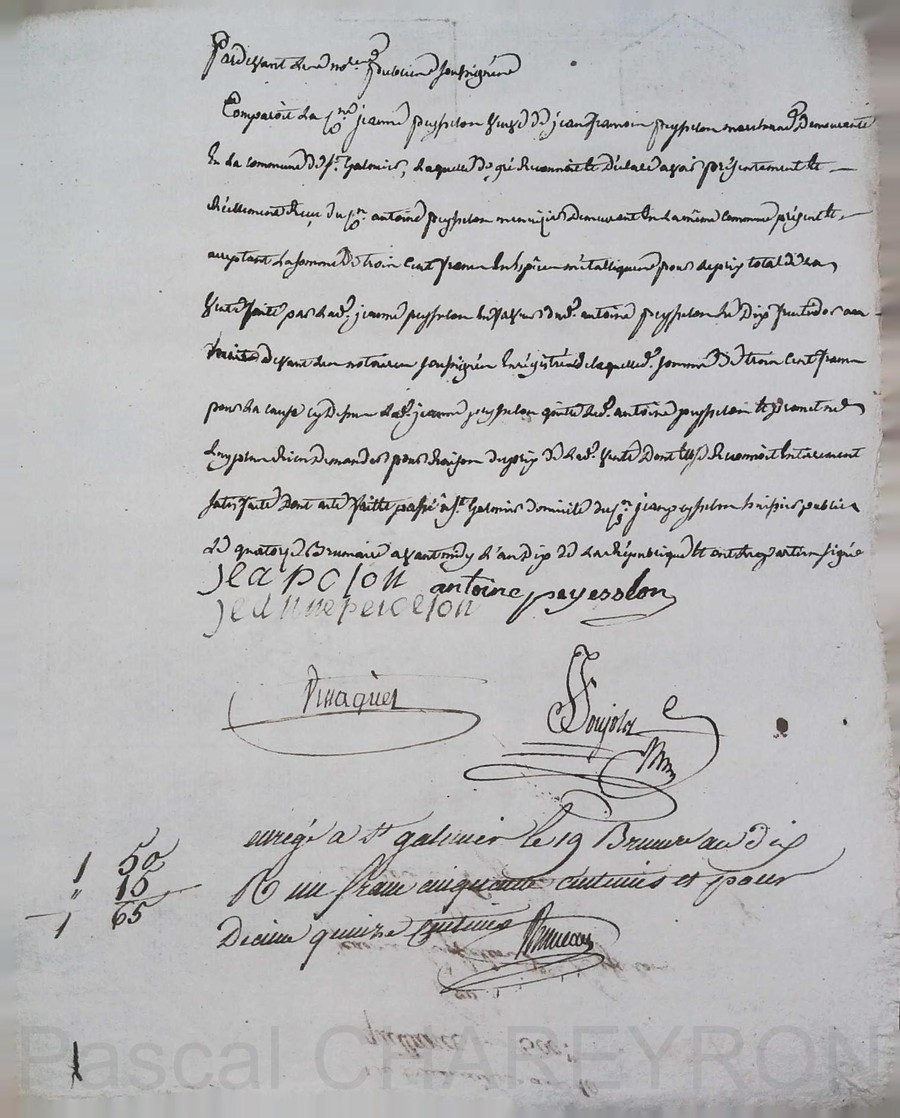 Pardevant les not.res publics soussignés
Comparoit la c.ne jeanne peysselon veuve de jean francois peysselon marchand Demeurante
En la commune de S.t Galmier, Laquelle de gré Reconnoit et Déclare avoir présentement et
Réellement Reçu du c.en antoine peysselon menuisier Demeurant En la même Commune présent et
acceptant La somme De trois Cent francs En Espèces métalliques pour Le prix total de La
Vente faite par Lad.e jeanne peysselon En faveur dud. antoine peysselon Le Dix
devant Les notaires soussignés Enrégistrée de laquelle d. somme De trois Cent francs
pour La cause cy Dessus Lad.e jeanne peysselon quitte led. antoine peysselon et promet ne
Luy plus Rien Demander pour Raison du prix de Lad.e Vente Dont Elle se Reconnoit Entièrement
satisfaite Dont acte fait et passé à S.t Galmier domicile du c.en jean peysselon huissier public
Le quatorze Brumaire avant midy L'an Dix de La République Et ont Les parties signé
antoine peyesslon
jeanne peicelon
enregé a St galmier le 19 Brumre an dix
1 50
R un franc cinquante centimes et pour
" 15
Decime quinze centimes
1 65
quittance 300.
Pascal CHAREYRON